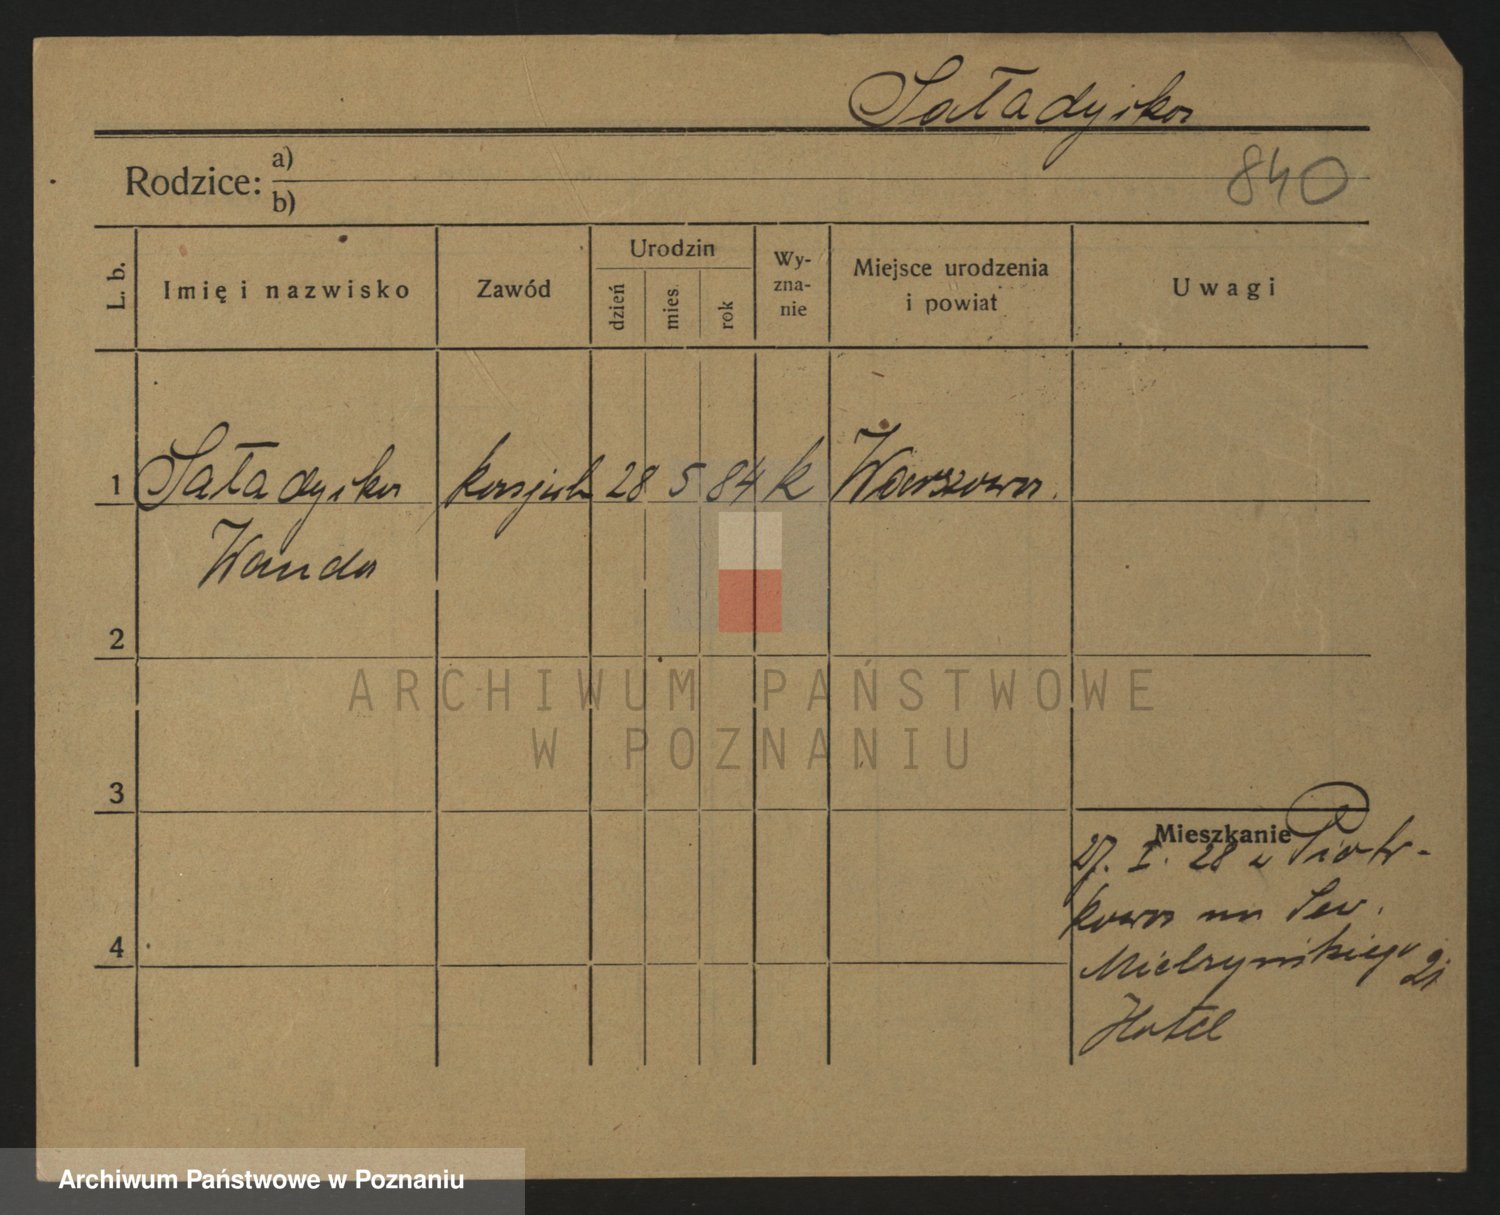 Saładyika
840
Rodzice: a)
b)
L. b.
Imię i nazwisko
Zawód
Urodzin
dzień
mies.
rok
Wy-
zna-
nie
Miejsce urodzenia
i powiat
Uwagi
1 Saładyika 28 5 84 k Warszawa.
Wanda
2
ARCHIWUM PAŃSTWOWE
W POZNANIU
3
Mieszkanie
27. I. 28 z Piotr-
kowa na Sew.
Mielżyńskiego 21
Hotel
4
Archiwum Państwowe w Poznaniu